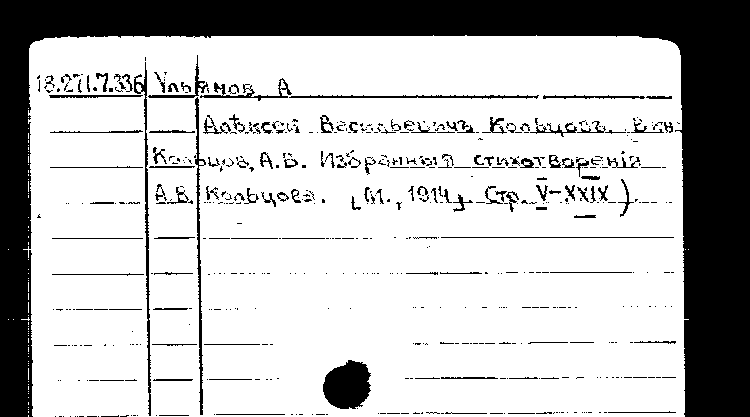 18.271.7.336 Ульянов, А
Алѣксей Васильевичъ Кольцовъ. В кн:
Кольцов, А.В. Избранныя стихотворенія
А.В. Кольцова. [М., 1914]. Стр. V-XXIX).